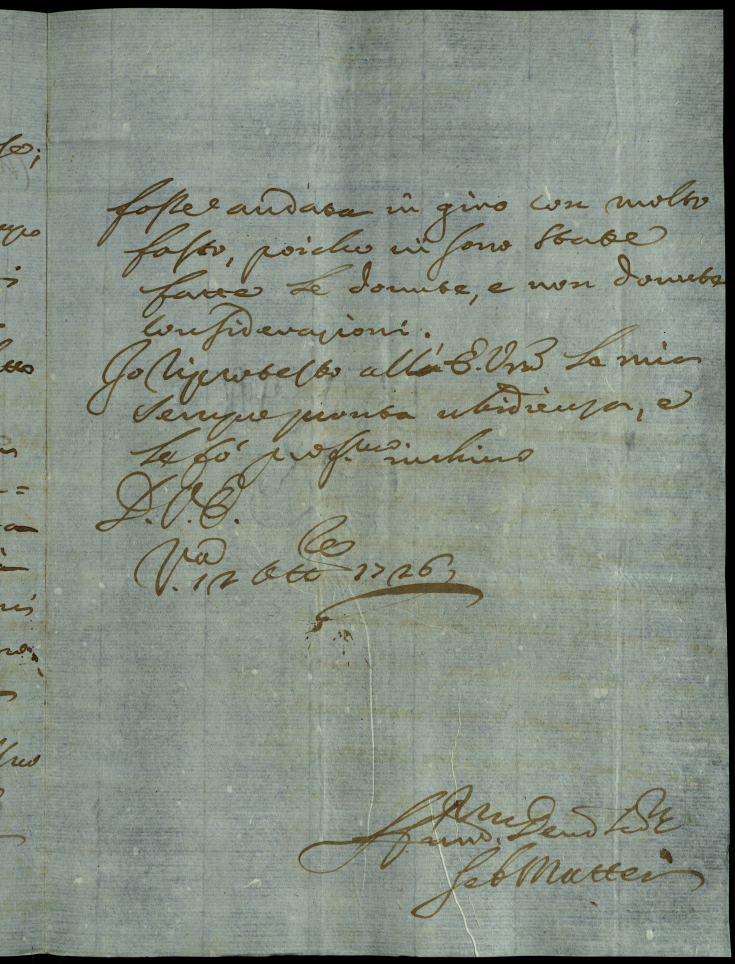 fosse andata in giro con molto
fasto, poiche vi sono state
fatte le dovute, e non dovute
considerazioni.
Io riprotesto all'E. Vrã la mia
sempre pronta ubidienza, e
le fò prof.mo inchino
D. V. E.
Vã 12 Otto 1726
Seb Mattei